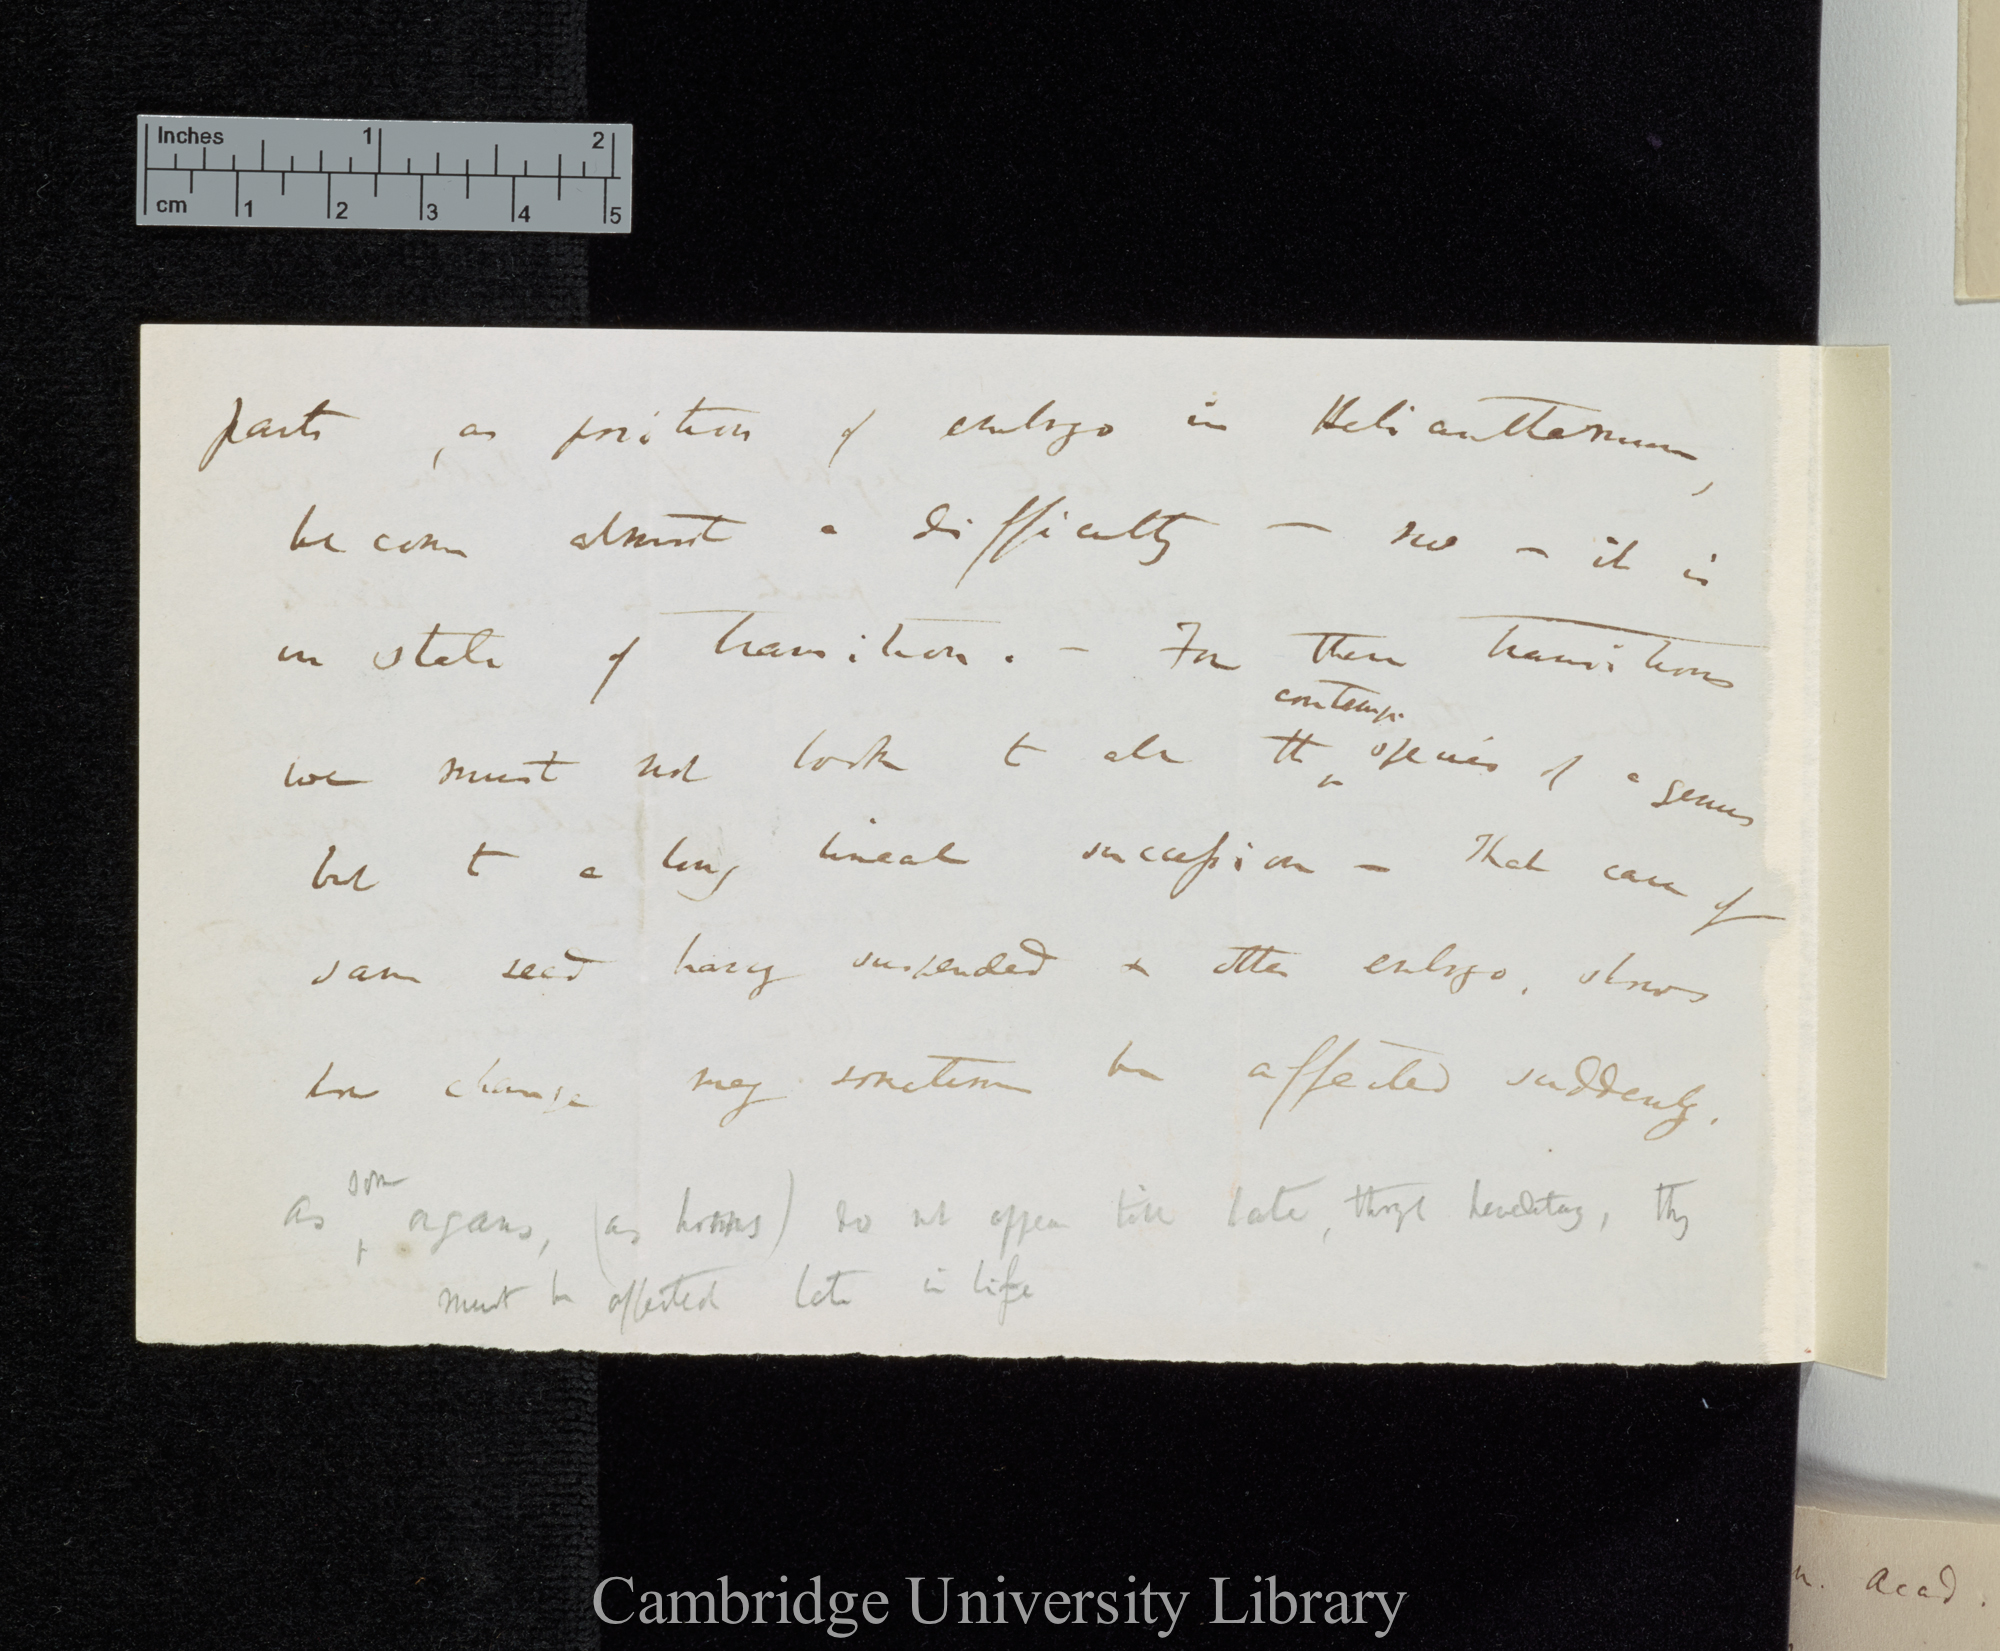 Inches 1 2
cm 1 2 3 4 5
parts, as position of embryo in Helianthemum,
become almost a difficulty — no — it is
in state of transition. — For these transitions
contemp.
we must not look to all the species of a genus
but to a long lineal succession — That case of
same seed having suspended & other embryo, shows
how change may sometimes be affected suddenly.
some
as organs, (as horns) do not appear till late, though hereditary, they
must be affected late in life
n. Acad.
Cambridge University Library